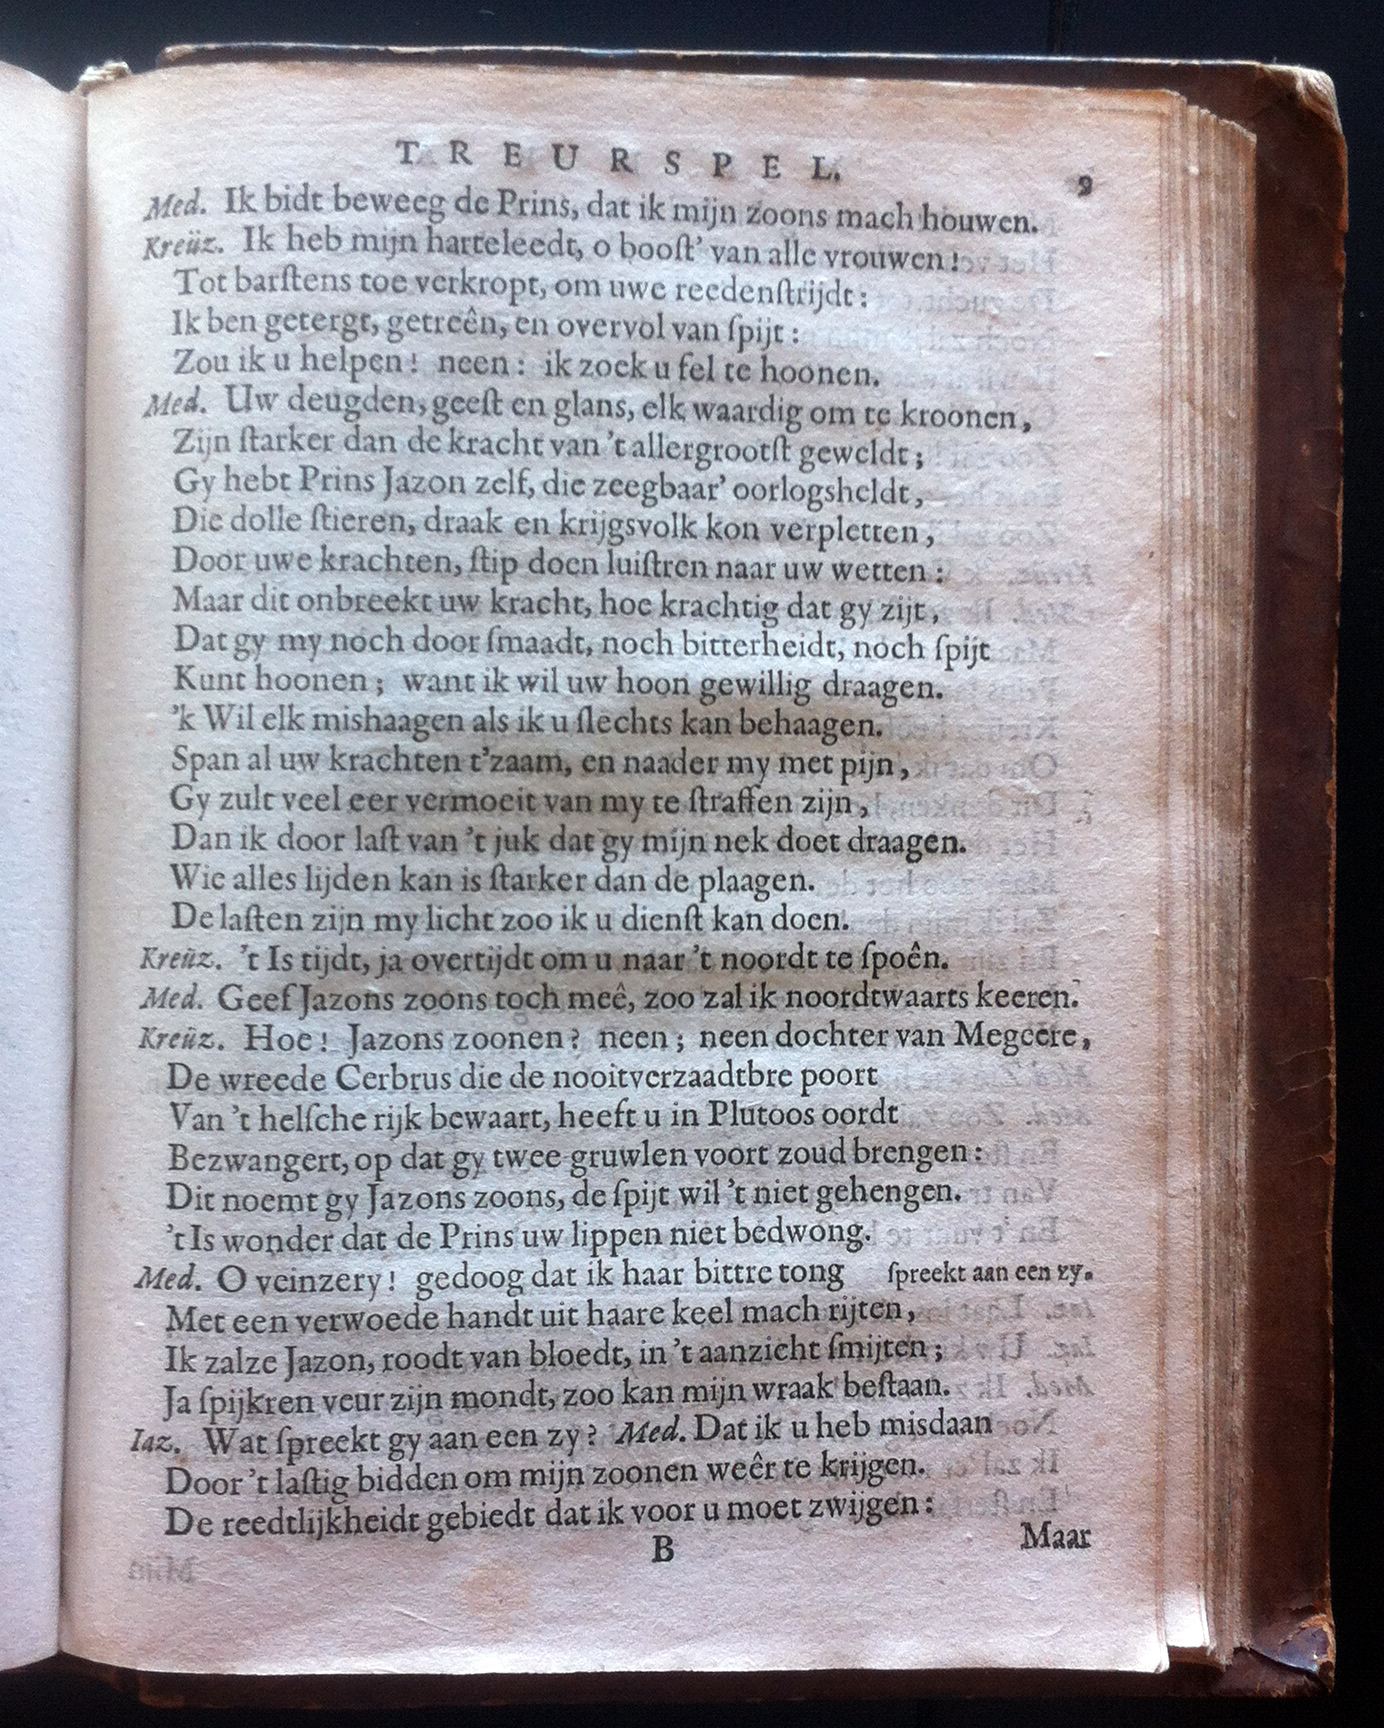 TREURSPEL. 9
Med. Ik bidt beweeg de Prins, dat ik mijn zoons mach houwen.
Kreüz. Ik heb mijn harteleedt, o booſt' van alle vrouwen!
Tot barſtens toe verkropt, om uwe reedenſtrijdt:
Ik ben getergt, getreên, en overvol van ſpijt:
Zou ik u helpen! neen: ik zoek u fel te hoonen.
Med. Uw deugden, geeſt en glans, elk waardig om te kroonen,
Zijn ſtarker dan de kracht van 't allergrootſt geweldt;
Gy hebt Prins Jazon zelf, die zeegbaar' oorlogsheldt,
Die dolle ſtieren, draak en krijgsvolk kon verpletten,
Door uwe krachten, ſtip doen luiſtren naar uw wetten:
Maar dit onbreekt uw kracht, hoe krachtig dat gy zijt,
Dat gy my noch door ſmaadt, noch bitterheidt, noch ſpijt
Kunt hoonen; want ik wil uw hoon gewillig draagen.
'k Wil elk mishaagen als ik u ſlechts kan behaagen.
Span al uw krachten t'zaam, en naader my met pijn,
Gy zult veel eer vermoeit van my te ſtraffen zijn,
Dan ik door laſt van 't juk dat gy mijn nek doet draagen.
Wie alles lijden kan is ſtarker dan de plaagen.
De laſten zijn my licht zoo ik u dienſt kan doen.
Kreüz. 't Is tijdt, ja overtijdt om u naar 't noordt te ſpoên.
Med. Geef Jazons zoons toch meê, zoo zal ik noordtwaarts keeren.
Kreüz. Hoe! Jazons zoonen? neen; neen dochter van Megeere,
De wreede Cerbrus die de nooitverzaadtbre poort
Van 't helſche rijk bewaart, heeft u in Plutoos oordt
Bezwangert, op dat gy twee gruwlen voort zoud brengen:
Dit noemt gy Jazons zoons, de ſpijt wil 't niet gehengen.
't Is wonder dat de Prins uw lippen niet bedwong.
Med. O veinzery! gedoog dat ik haar bittre tong ſpreekt aan een zy.
Met een verwoede handt uit haare keel mach rijten,
Ik zalze Jazon, roodt van bloedt, in 't aanzicht ſmijten;
Ja ſpijkren veur zijn mondt, zoo kan mijn wraak beſtaan.
Iaz. Wat ſpreekt gy aan een zy? Med. Dat ik u heb misdaan
Door 't laſtig bidden om mijn zoonen weêr te krijgen.
De reedtlijkheidt gebiedt dat ik voor u moet zwijgen:
B Maar